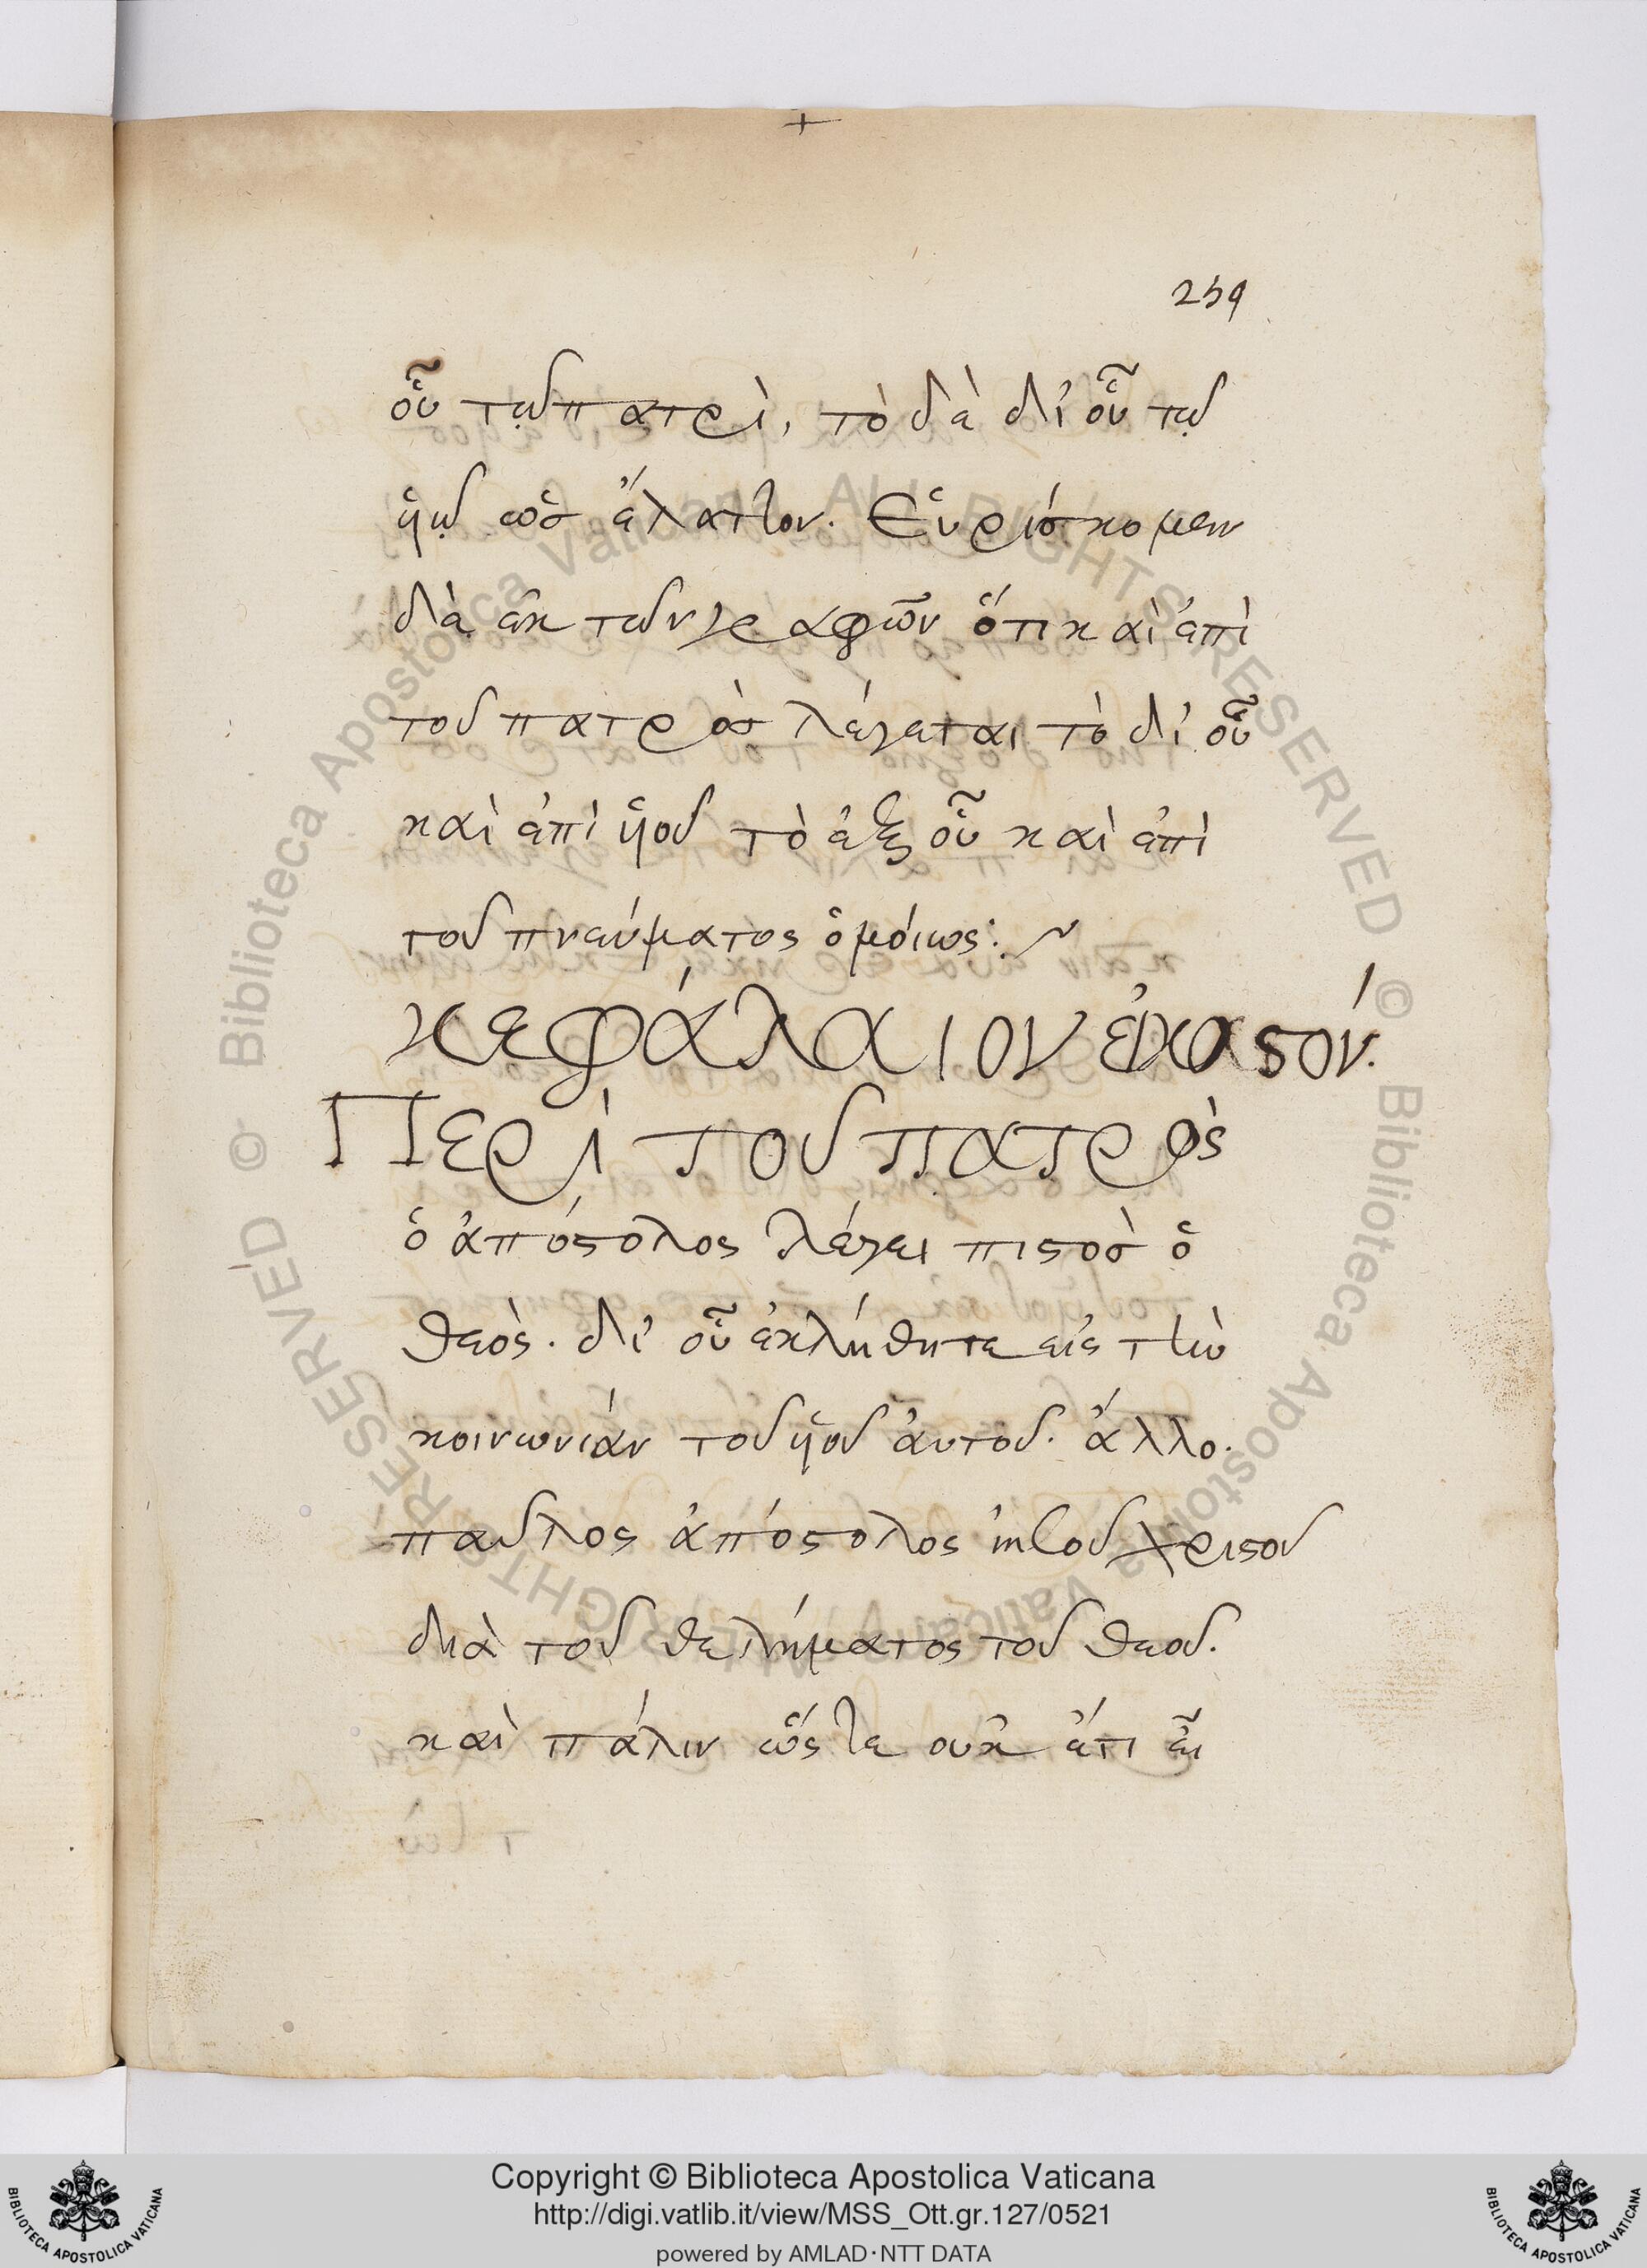 259
οὗ τῷ πατρὶ, τὸ δὲ δι' οὗ τῷ
ὑῷ ὡσ ἔλαττον. Εὑρίσκομεν
δὲ ἐκ τῶν γραφῶν ὅτι καὶ ἐπὶ
τοῦ πατρὸσ λέγεται τὸ δι' οὗ
καὶ ἐπὶ ὑοῦ τὸ ἐξ οὗ καὶ ἐπὶ
τοῦ πνεύματος ὁμόιως:~
κεφάλαιον ἑκαϛόν.
Περὶ τοῦ πατρὸς
ὁ ἀπόϛολος λέγει πιϛοσ ὁ
θεὸς. δι' οὗ ἐκλήθητε εἰς τὴν
κοινωνίαν τοῦ ὑοῦ ἀυτοῦ. ἄλλο.
παῦλος ἀπόϛολος ἰησοῦ χριϛοῦ
διὰ τοῦ θελήματος τοῦ θεοῦ.
καὶ πάλιν ὥςτε ουκ ἔτι εἶ
Copyright © Biblioteca Apostolica Vaticana
http://digi.vatlib.it/view/MSS_Ott.gr.127/0521
powered by AMLAD·NTT DATA
BIBLIOTECA APOSTOLICA VATICANA
BIBLIOTECA APOSTOLICA VATICANA
© Biblioteca Apostolica Vaticana ALL RIGHTS RESERVED
© Biblioteca Apostolica Vaticana ALL RIGHTS RESERVED